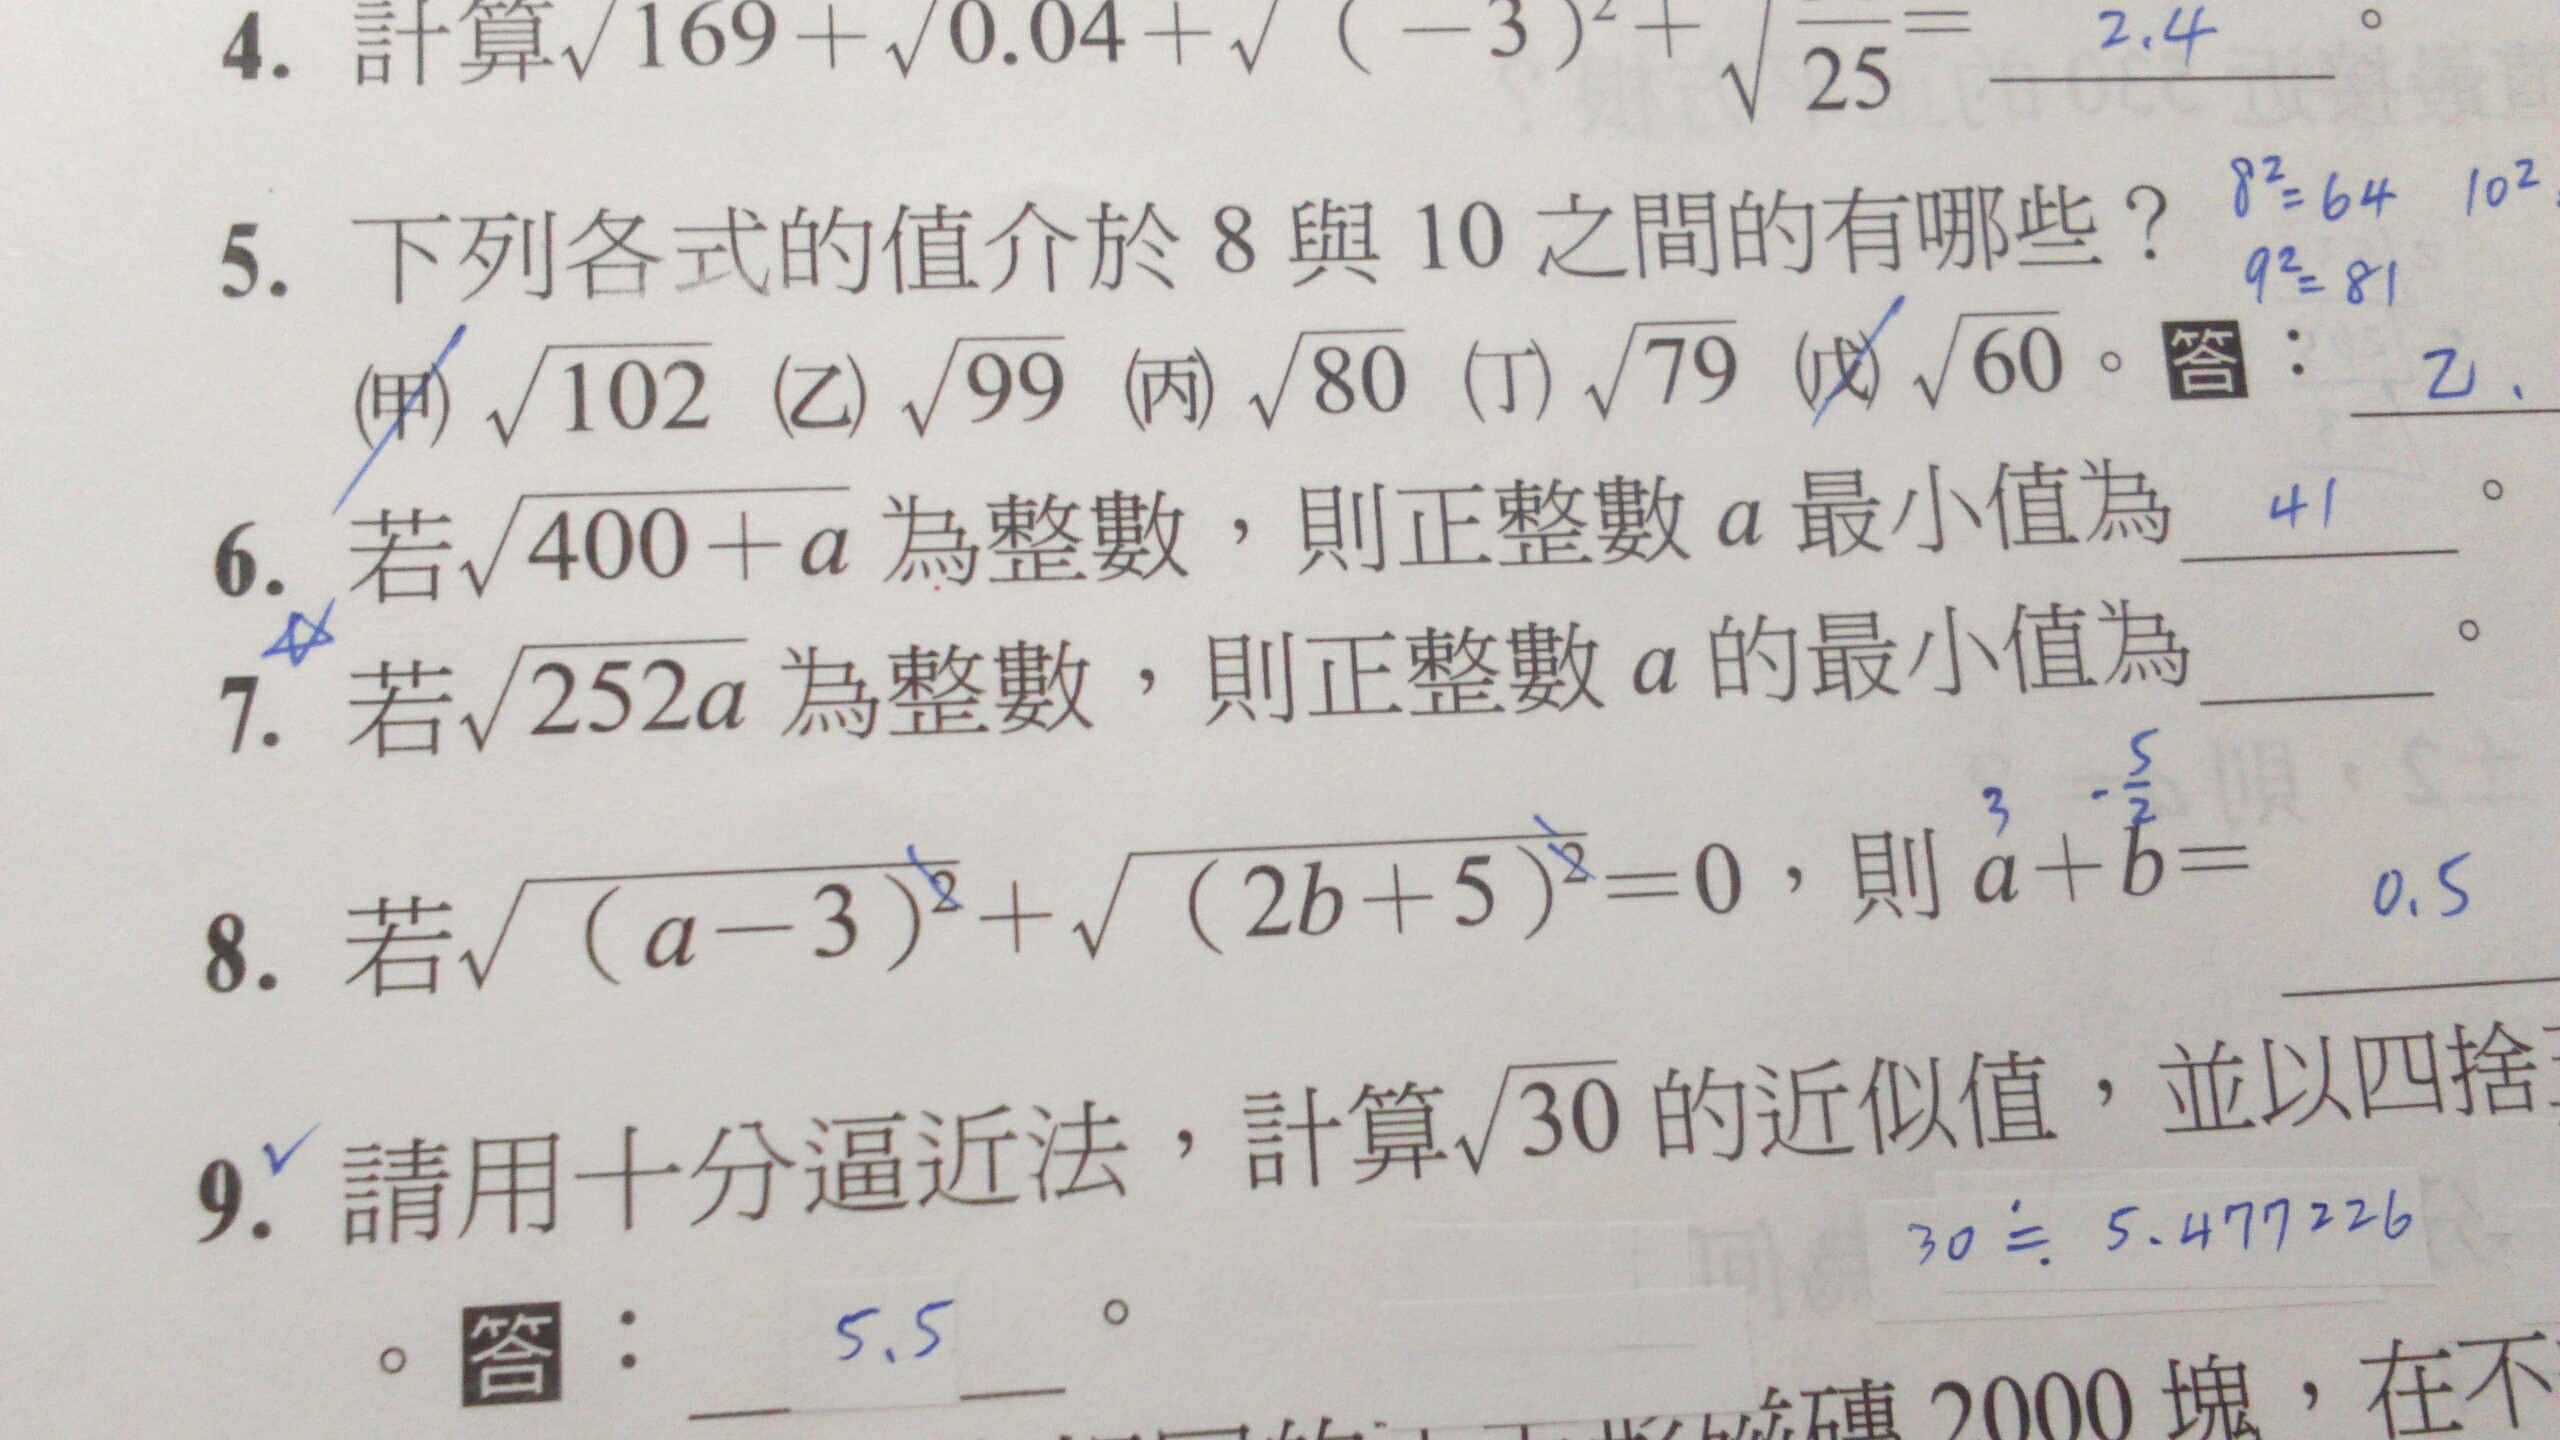 4. 計算√169+√0.04+√(-3)²+√ /25= 2.4 。
5. 下列各式的值介於 8 與 10 之間的有哪些？ 8²=64 10²
9²=81
(甲) √102 (乙) √99 (丙) √80 (丁) √79 (戊) √60 。答： 乙.
6. 若√400+a 為整數，則正整數 a 最小值為 41 。
☆
7. 若√252a 為整數，則正整數 a 的最小值為 。
3 -5/2
8. 若√(a-3)²+√(2b+5)²=0，則 a+b= 0.5
9. ✓ 請用十分逼近法，計算√30 的近似值，並以四捨
30≒5.477226
。答： 5.5 。
磚 2000 塊，在不